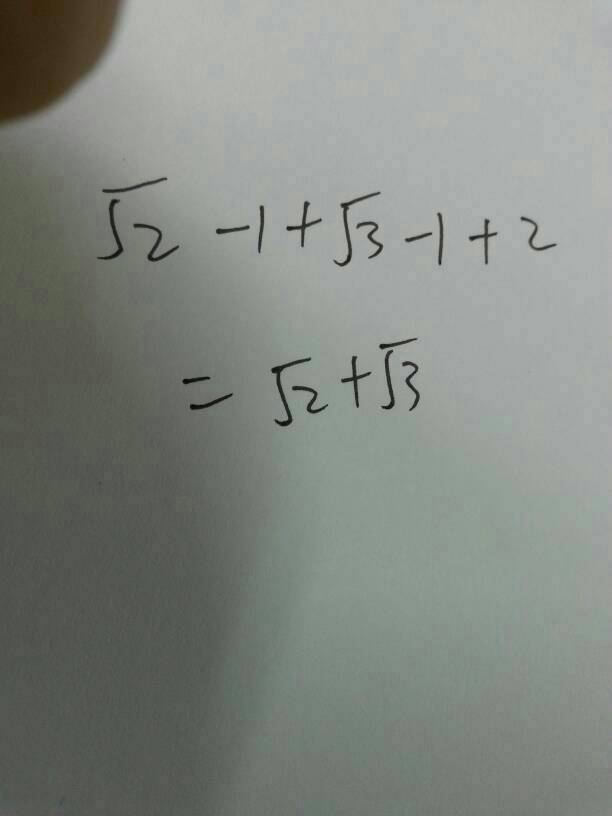 √2 -1+√3-1+2
= √2+√3